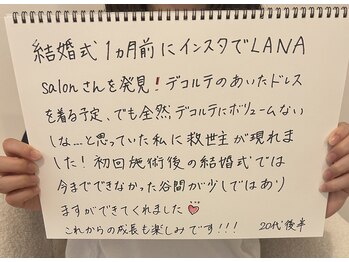 結婚式1ヵ月前にインスタでLANA
salonさんを発見！デコルテのあいたドレス
を着る予定、でも全然デコルテにボリュームない
しな…と思っていた私に救世主が現れま
した！初回施術後の結婚式では
今までできなかった谷間が少しではあり
ますができてくれました♡
これからの成長も楽しみです!!!
20代後半